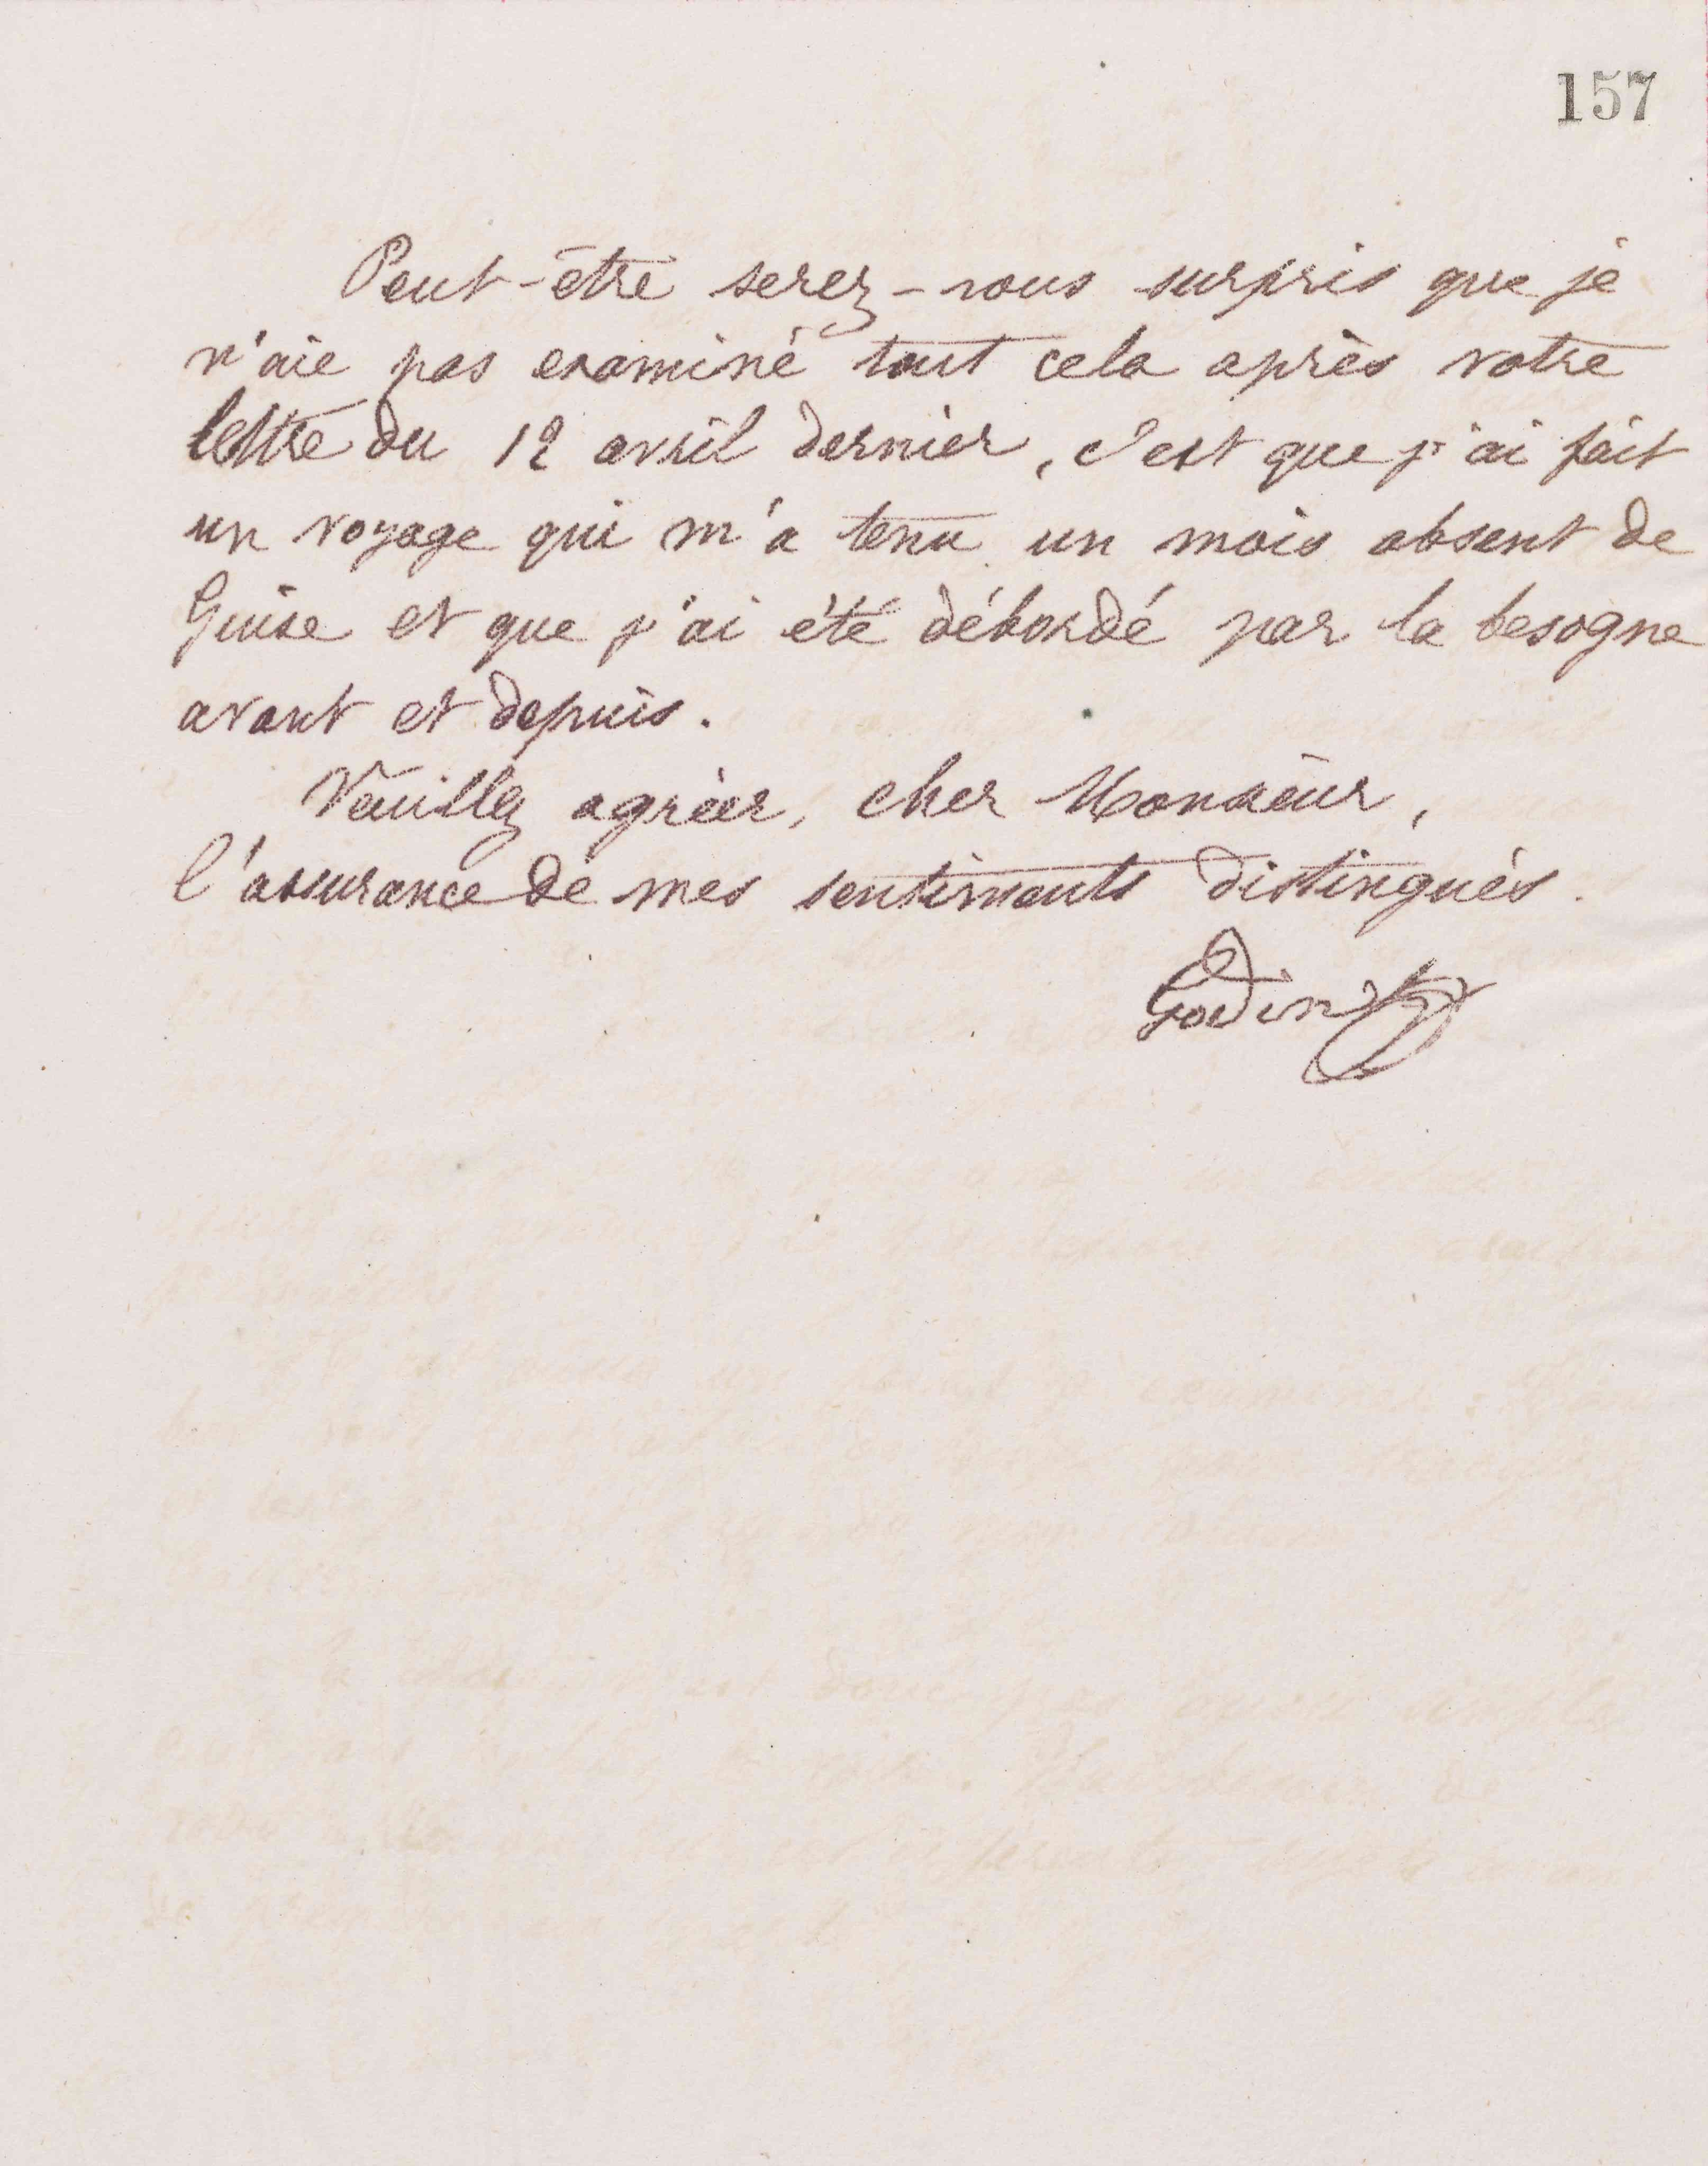 157
Peut-être serez-vous surpris que je
n'aie pas examiné tout cela après votre
lettre du 12 avril dernier, c'est que j'ai fait
un voyage qui m'a tenu un mois absent de
Guise et que j'ai été débordé par la besogne
avant et depuis.
Veuillez agréer, cher Monsieur,
l'assurance de mes sentiments distingués.
Godin